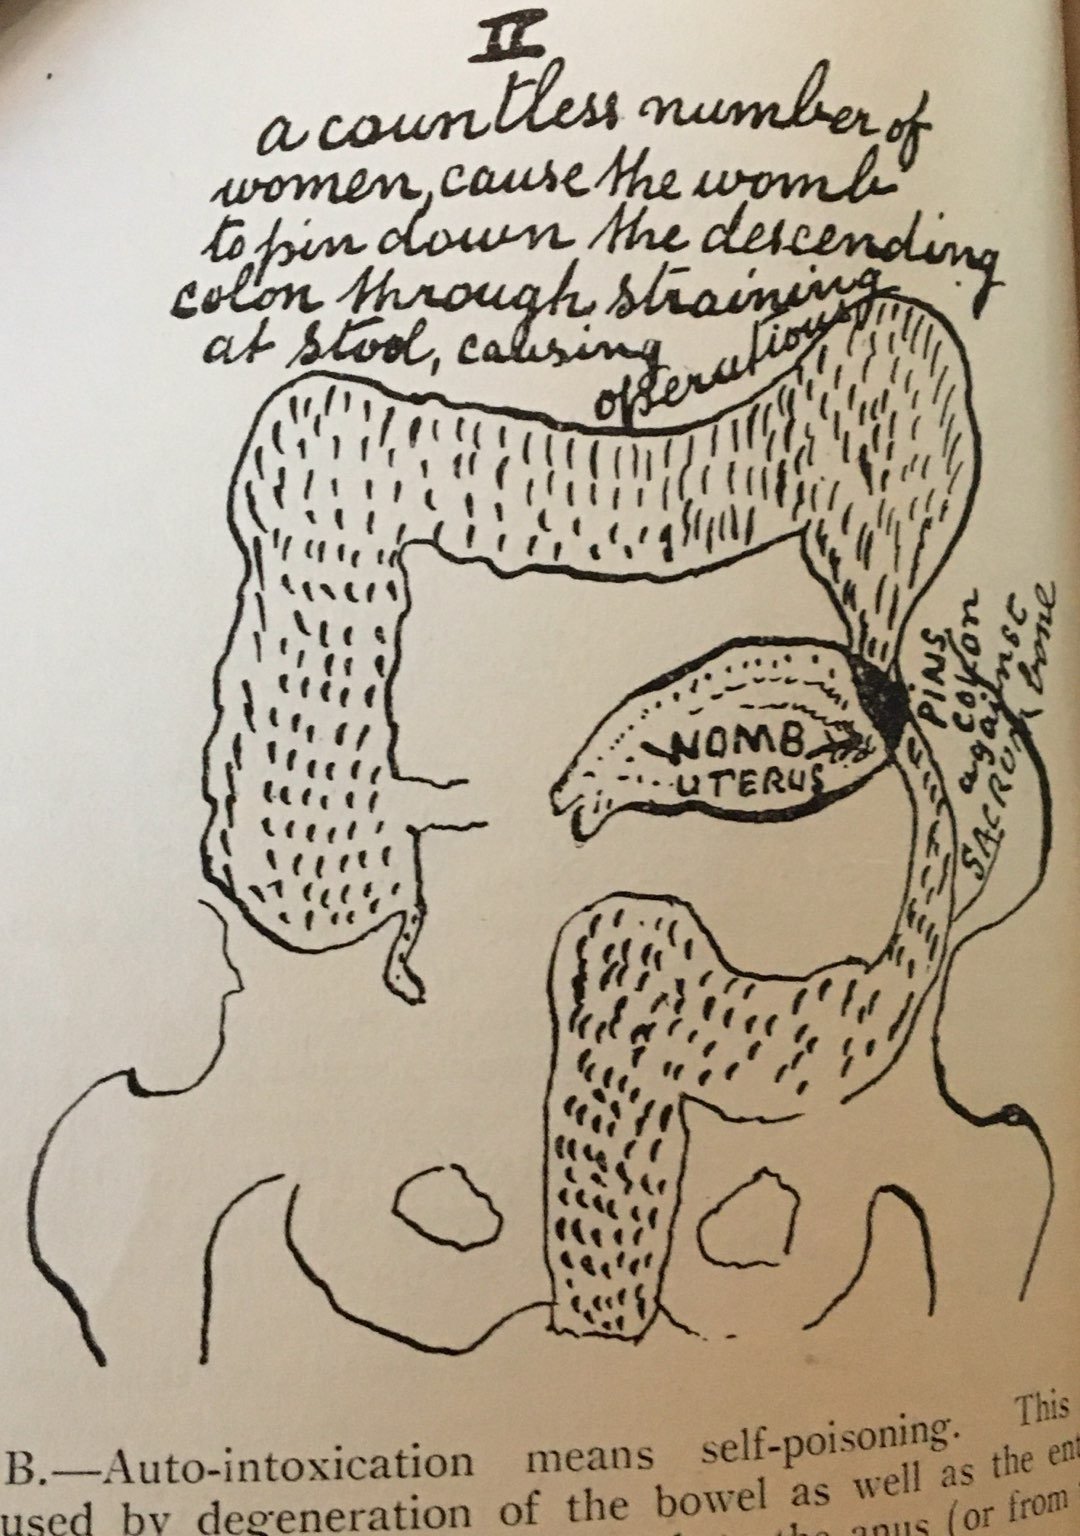 II
a countless number of
women, cause the womb
to pin down the descending
colon through straining
at stool, causing
operations
PINS
colon
against
SACRUM
bone
WOMB
UTERUS
B.—Auto-intoxication means self-poisoning. This
used by degeneration of the bowel as well as the ent
the anus (or from